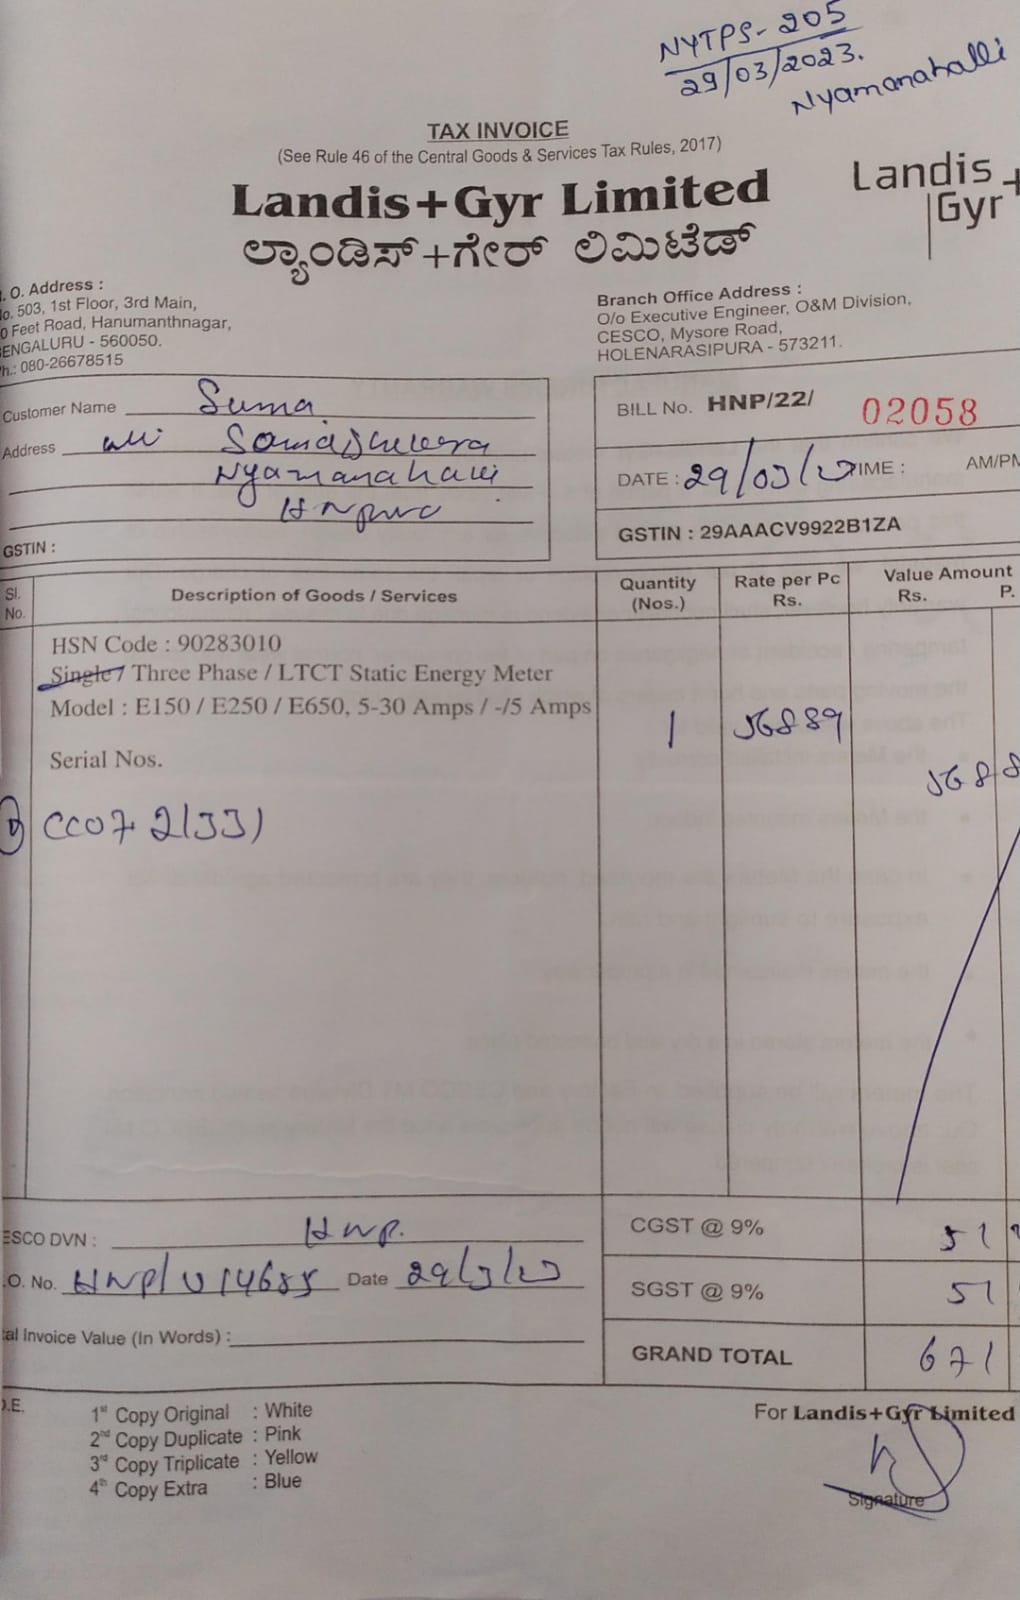 NYTPS-205
29/03/2023.
Nyamanahalli
TAX INVOICE
(See Rule 46 of the Central Goods & Services Tax Rules, 2017)
Landis+Gyr Limited
ಲ್ಯಾಂಡಿಸ್+ಗೇರ್ ಲಿಮಿಟೆಡ್
Landis
Gyr+
. O. Address :
o. 503, 1st Floor, 3rd Main,
0 Feet Road, Hanumanthnagar,
ENGALURU - 560050.
h.: 080-26678515
Branch Office Address :
O/o Executive Engineer, O&M Division,
CESCO, Mysore Road,
HOLENARASIPURA - 573211.
Customer Name Suma
Address
Nyamanahalli
GSTIN :
BILL No. HNP/22/ 02058
DATE : 29/03/23 TIME : AM/PM
GSTIN : 29AAACV9922B1ZA
Sl. No. Description of Goods / Services Quantity (Nos.) Rate per Pc Rs. Value Amount Rs. P.
HSN Code : 90283010
Single / Three Phase / LTCT Static Energy Meter
Model : E150 / E250 / E650, 5-30 Amps / -/5 Amps
1 56889
Serial Nos.
5688
CC072133)
ESCO DVN : HNP.
.O. No. HNP/ 14685 Date 29/3/23
tal Invoice Value (In Words) :
CGST @ 9% 51
SGST @ 9% 51
GRAND TOTAL 671
O.E.
1st Copy Original : White
2nd Copy Duplicate : Pink
3rd Copy Triplicate : Yellow
4th Copy Extra : Blue
For Landis+Gyr Limited
Signature